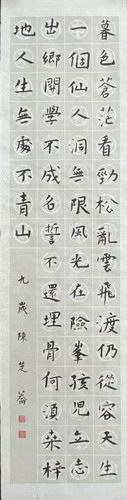 暮色蒼茫看勁松亂雲飛渡仍從容天生
一個仙人洞無限風光在險峯孩兒立志
出鄉關學不成名誓不還埋骨何須桑梓
地人生無處不青山
九歲陳芝